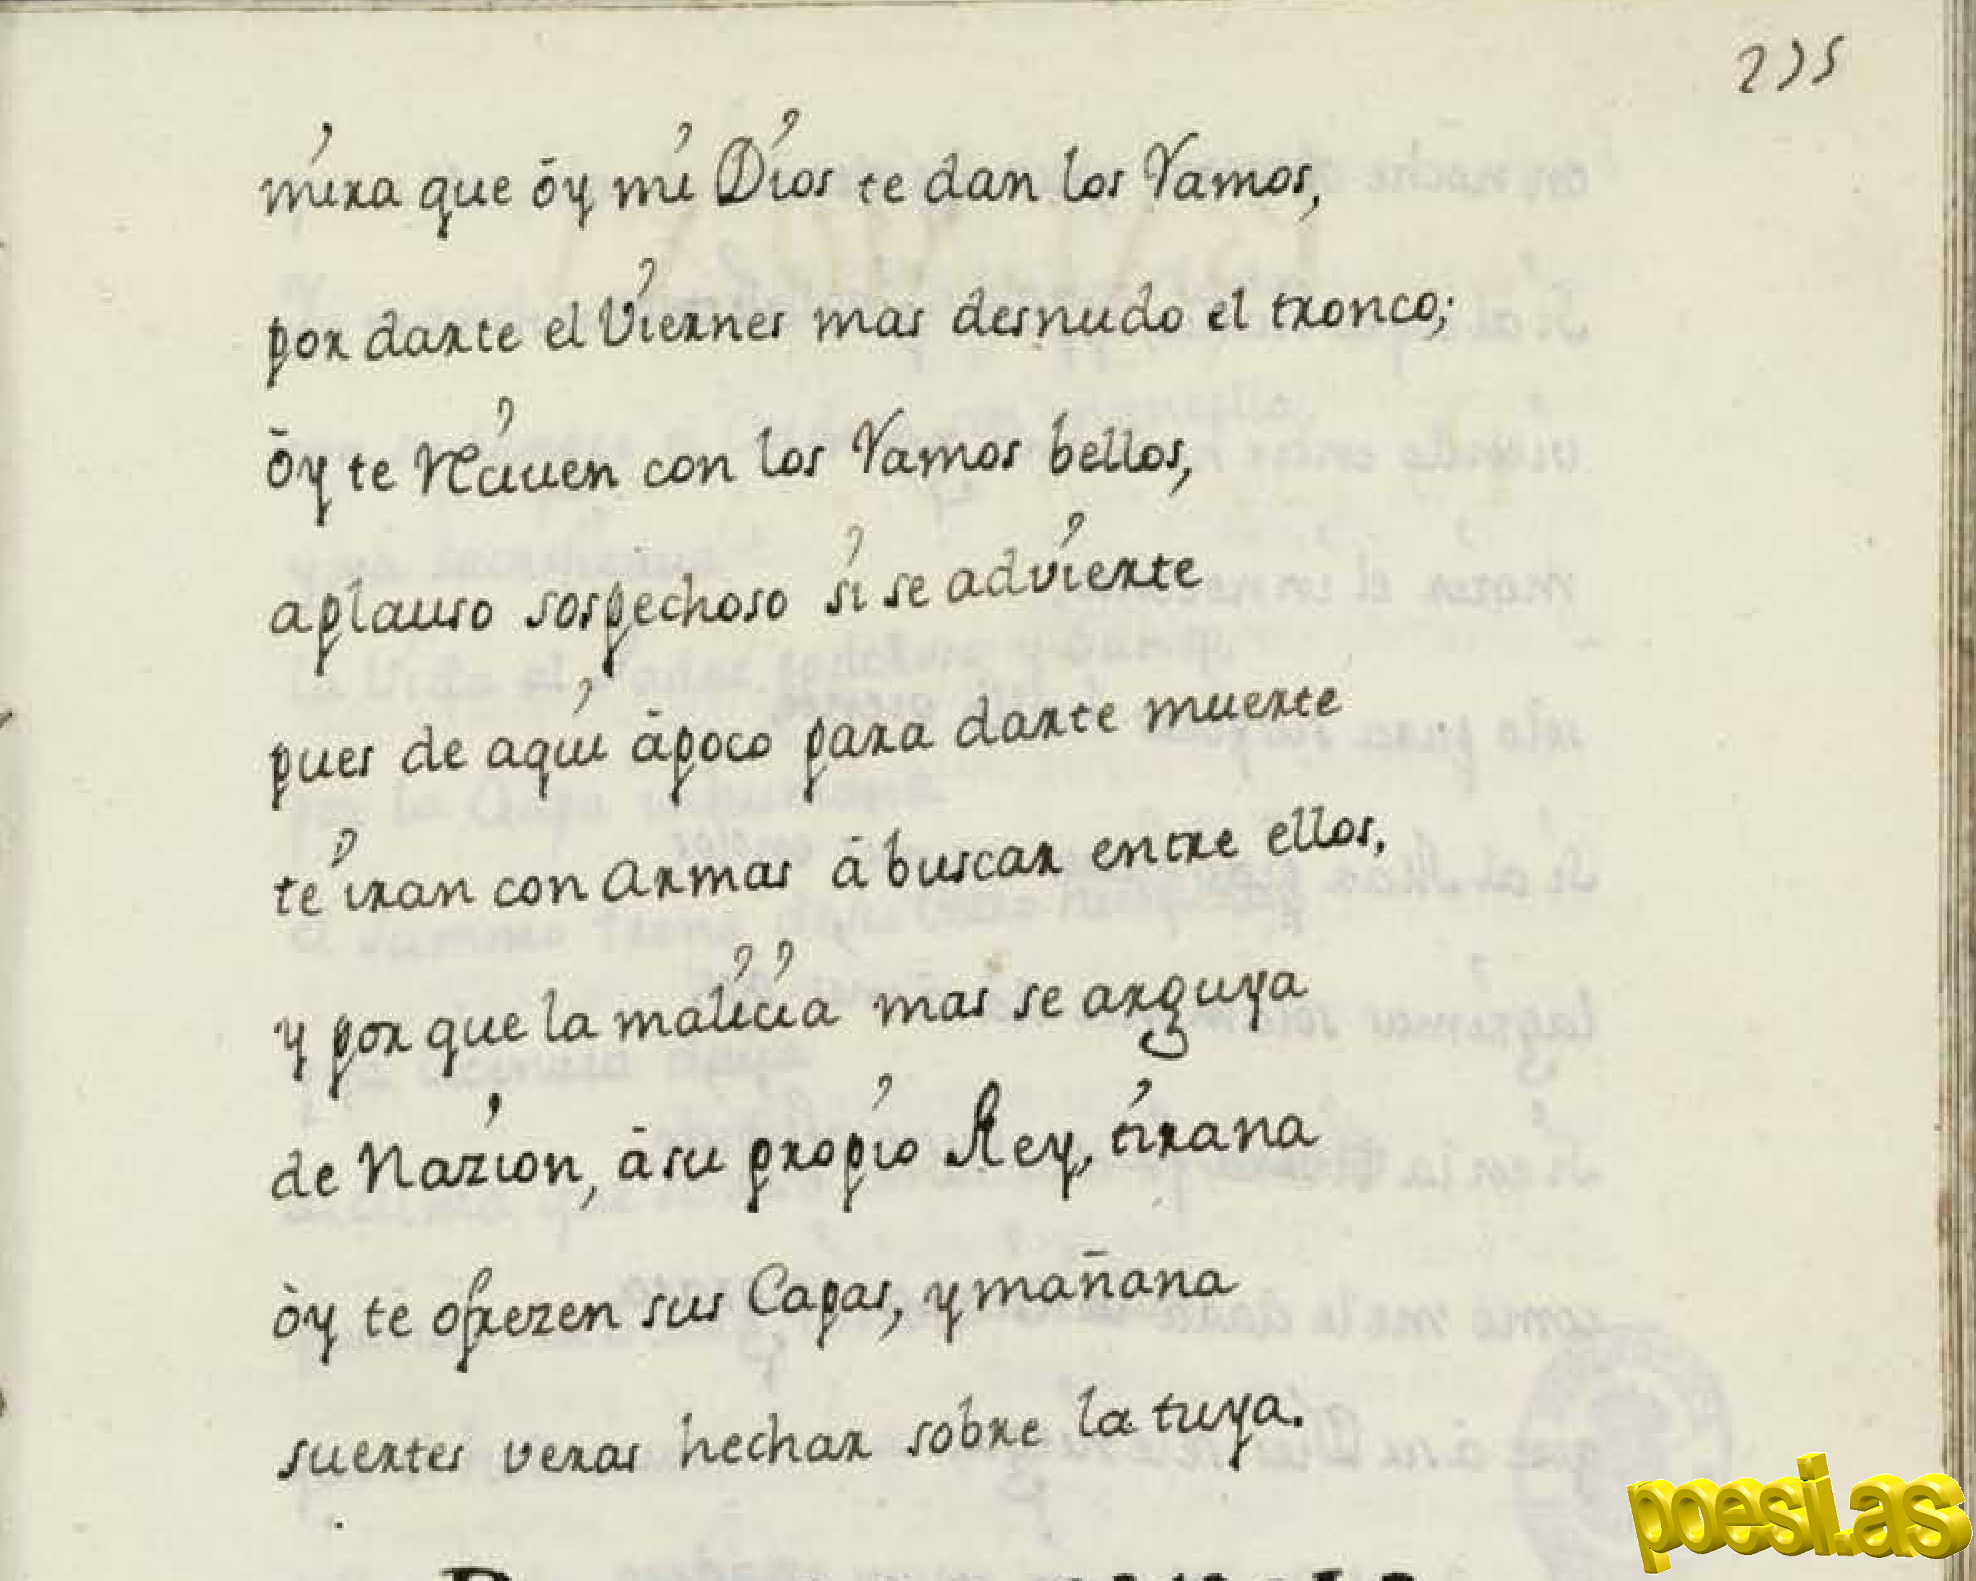 235
mira que õy mi Dios te dan los Ramos,
por darte el Viernes mas desnudo el tronco;
õy te reciuen con los Ramos bellos,
aplauso sospechoso si se advierte
pues de aqui ā poco para darte muerte
te iran con armas ā buscar entre ellos,
y por que la malicia mas se arguya
de Nazion, ā su propio Rey, tirana
òy te ofrezen sus Capas, y mañana
suertes veras hechar sobre la tuya.
poesi.as